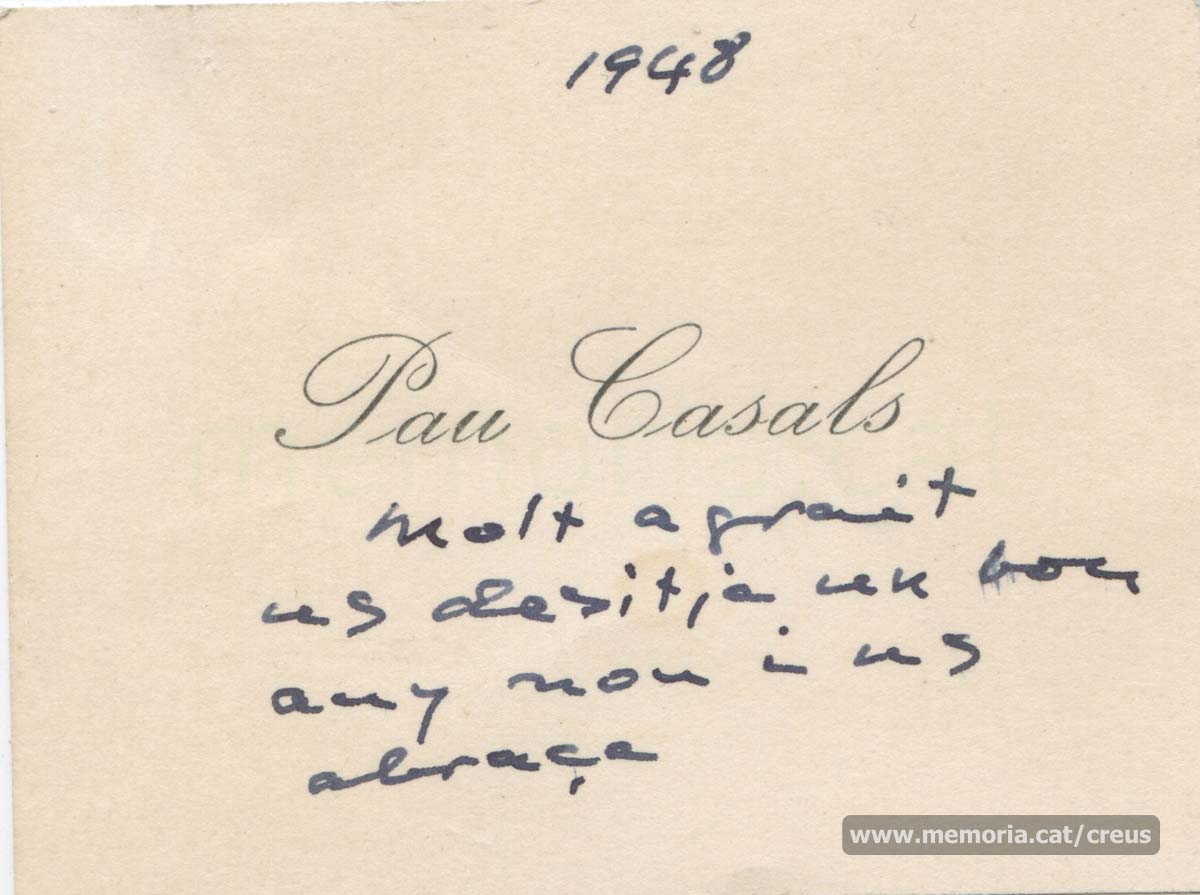 1948
Pau Casals
Molt agrait
us desitja un bon
any nou i us
abraça
www.memoria.cat/creus